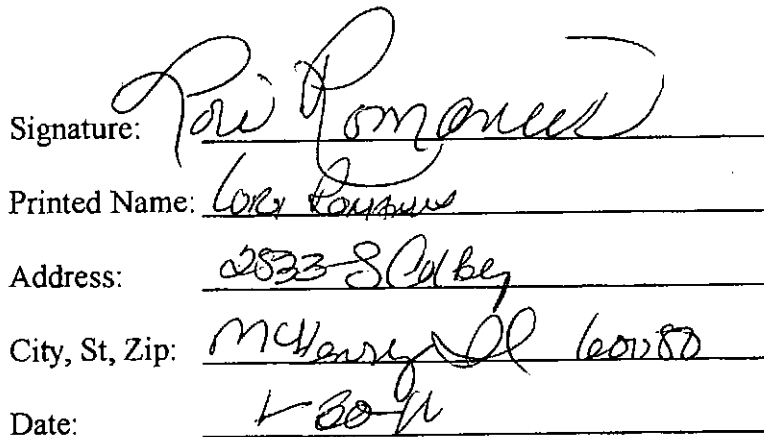 Signature: Lori Romanus
Printed Name: Lori Romanus
Address: 2833 S Colby
City, St, Zip: McHenry Ill
Date: